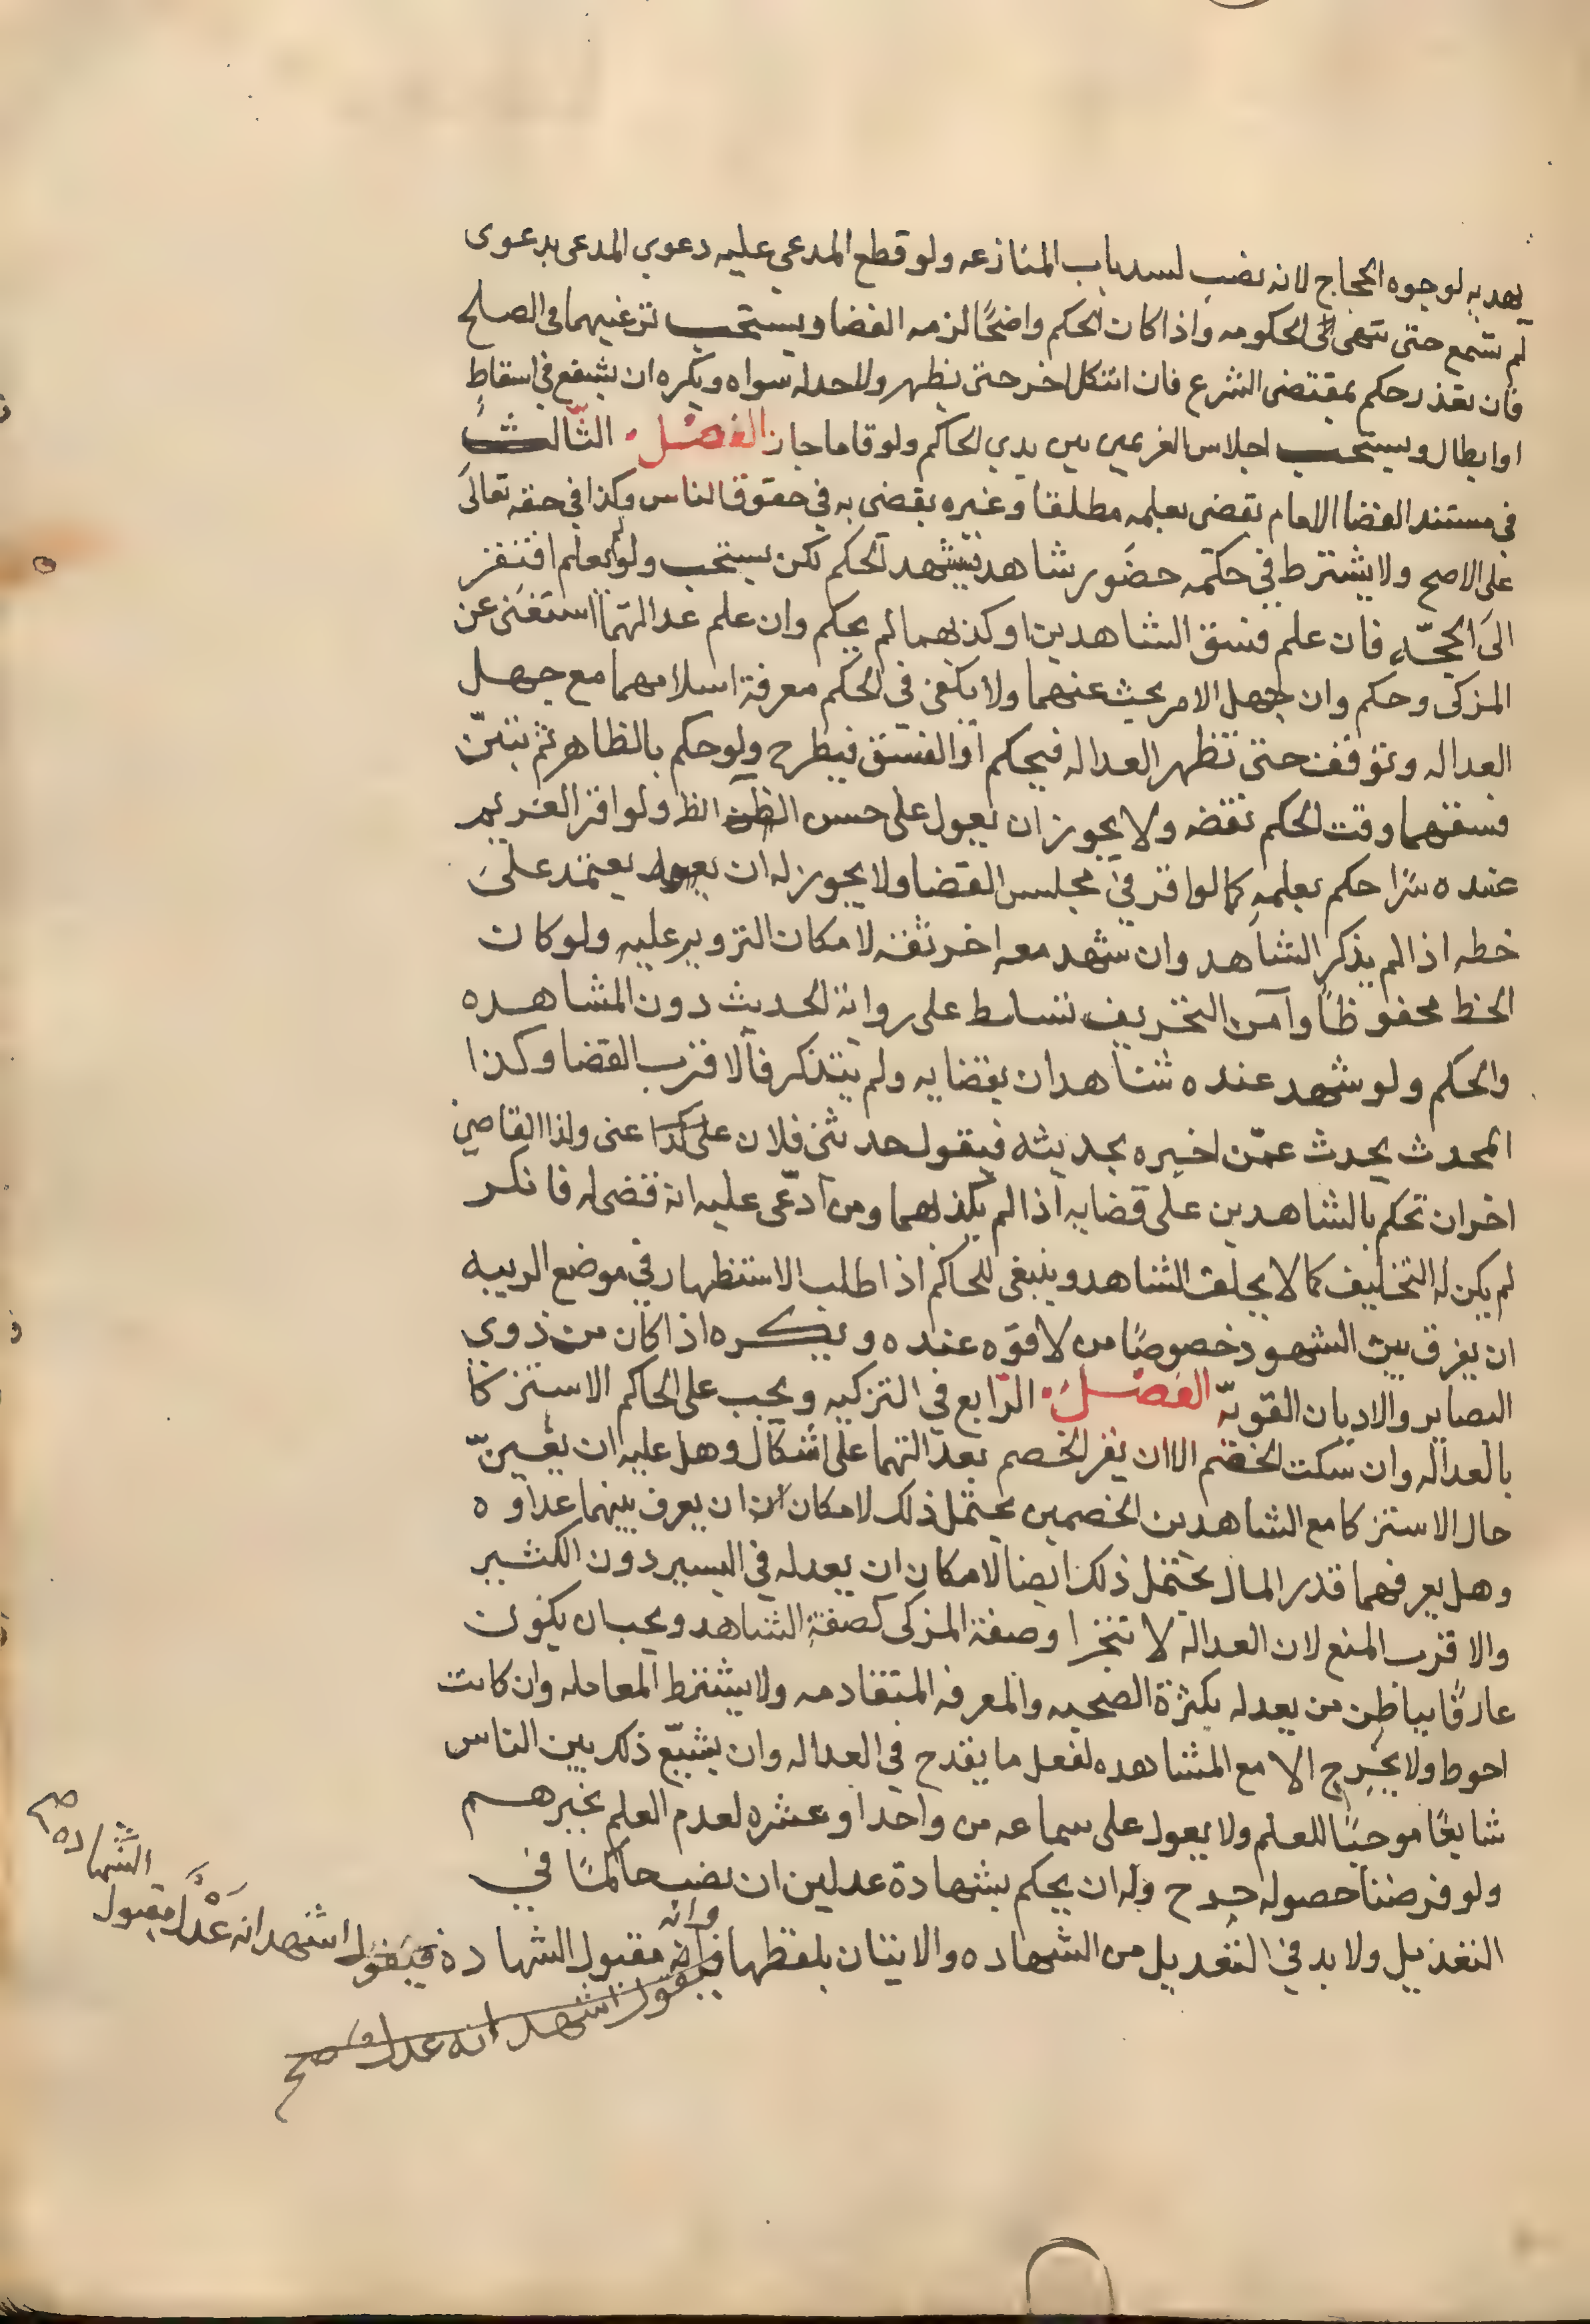 يهديه لوجوه الحجاج لانه نصب لسد باب المنازعه ولو قطع المدعى عليه دعوى المدعى بدعوى
لم تسمع حتى تنتهى الى الحكومه واذا كان الحكم واضحًا لزمه القضا ويستحب ترغيبهما في الصلح
فان تعذر حكم بمقتضى الشرع فان اشكل اخر حتى يظهر ولا حد له سواه ويكره ان يشفع في اسقاط
او ابطال ويستحب اجلاس الغريمين بين يدي الحاكم ولو قاما جاز الفصل الثالث
في مستند القضا الامام يقضى بعلمه مطلقا وغيره يقضى به في حقوق الناس وكذا في حقه تعالى
على الاصح ولا يشترط في حكمه حضور شاهد فيشهد الحكم لكن يستحب ولو لم يعلم افتقر
الى الحجّه فان علم فسق الشاهدين او كذبهما لم يحكم وان علم عدالتهما استغنى عن
المزكى وحكم وان جهل الامر بحث عنهما ولا يكفى في الحكم معرفة اسلامهما مع جهل
العداله وتوقف حتى تظهر العداله فيحكم او الفسق فيطرح ولو حكم بالظاهر ثم تبيّن
فسقهما وقت الحكم نقضه ولا يجوز ان يعول على حسن الظن الظ ولو اقر الغريم
عنده سرًا حكم بعلمه كما لو اقر في مجلس القضا ولا يجوز له ان يعول يعتمد على
خطه اذا لم يذكر الشاهد وان شهد معه اخر ثقة لامكان التزوير عليه ولو كان
الخط محفوظًا وامن التحريف تسلط على رواية الحديث دون المشاهده
والحكم ولو شهد عنده شاهدان بقضايه ولم يتذكر فالاقرب القضا وكذا
المحدث يحدث عمّن اخبره بحديثه فيقول حدثنى فلان على كذا عنى ولذا القاضي
اخر ان تحكم بالشاهدين على قضايه اذا لم يكذبهما ومن ادّعى عليه انه قضى له فانكر
لم يكن له التحليف كما لا يحلف الشاهد وينبغى للحاكم اذا طلب الاستظهار في موضع الريبه
ان يفرق بين الشهود خصوصًا من لا قوّه عنده ويكره اذا كان من ذوى
البصاير والاديان القويّه الفصل الرّابع في التزكيه ويجب على الحاكم الاستزكا
بالعداله وان سكت الخصم الا ان يقر الخصم بعدالتهما على اشكال وهل عليه ان يعيّن
حال الاستزكا مع الشاهدين الخصمين يحتمل ذلك لامكان ان يعرف بينهما عداوه
وهل يعرفهما قدر المال يحتمل ذلك ايضا لامكان ان يعدله في اليسير دون الكثير
والاقرب المنع لان العدالة لا تتجزا وصفة المزكى كصفة الشاهد ويجب ان يكون
عارفًا بباطن من يعدله بكثرة الصحبه والمعرفه المتقادمه ولا يشترط المعامله وان كانت
احوط ولا يجرح الا مع المشاهده لفعل ما يقدح في العداله وان يشيّع ذلك بين الناس
شايعًا موجبًا للعلم ولا يعول على سماعه من واحد او عشره لعدم العلم بخبرهم
ولو فرضنا حصوله جرح وله ان يحكم بشهادة عدلين ان نصب حاكمًا في
التعديل ولا بد في التعديل من الشهاده والاتيان بلفظها وانه مقبول الشهادة فيقول اشهد انه عَدْل مقبول
الشهاده صح
فيقول اشهد انه عدل صح